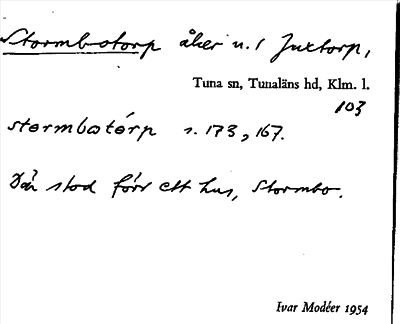 Stormbotorp åker n. 1 Juxtorp,
Tuna sn, Tunaläns hd, Klm. l.
103
stormbotórp s. 173, 167.
Där stod förr ett hus, Stormbo.
Ivar Modéer 1954